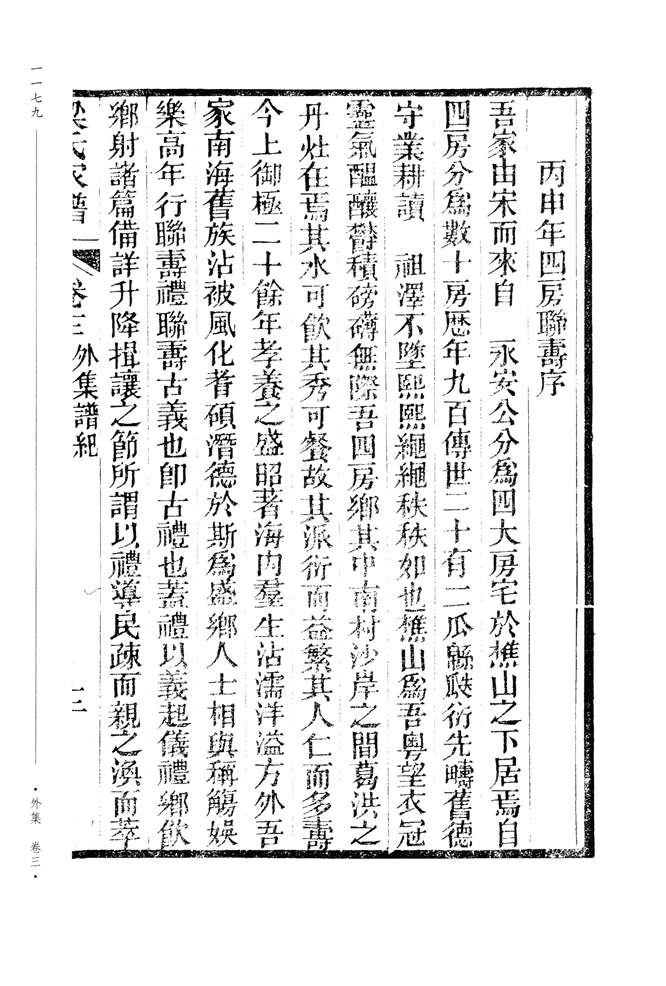 丙申年四房聯壽序
吾家由宋而來自　永安公分爲四大房宅於樵山之下居焉自
四房分爲數十房歷年九百傳世二十有二瓜緜瓞衍先疇舊德
守業耕讀　祖澤不墜熙熙繩繩秩秩如也樵山爲吾粤望衣冠
靈氣醞釀欝積磅礴無際吾四房鄉其中南村沙岸之間葛洪之
丹灶在焉其水可飲其秀可餐故其派衍而益繁其人仁而多壽
今上御極二十餘年孝養之盛昭著海内羣生沾濡洋溢方外吾
家南海舊族沾被風化耆碩潛德於斯爲盛鄉人士相與稱觴娛
樂高年行聯壽禮聯壽古義也卽古禮也蓋禮以義起儀禮鄉飲
鄉射諸篇備詳升降揖讓之節所謂以禮導民疎而親之渙而萃
梁氏家譜　卷三外集譜紀　十二
一一七九
·外集　卷三·